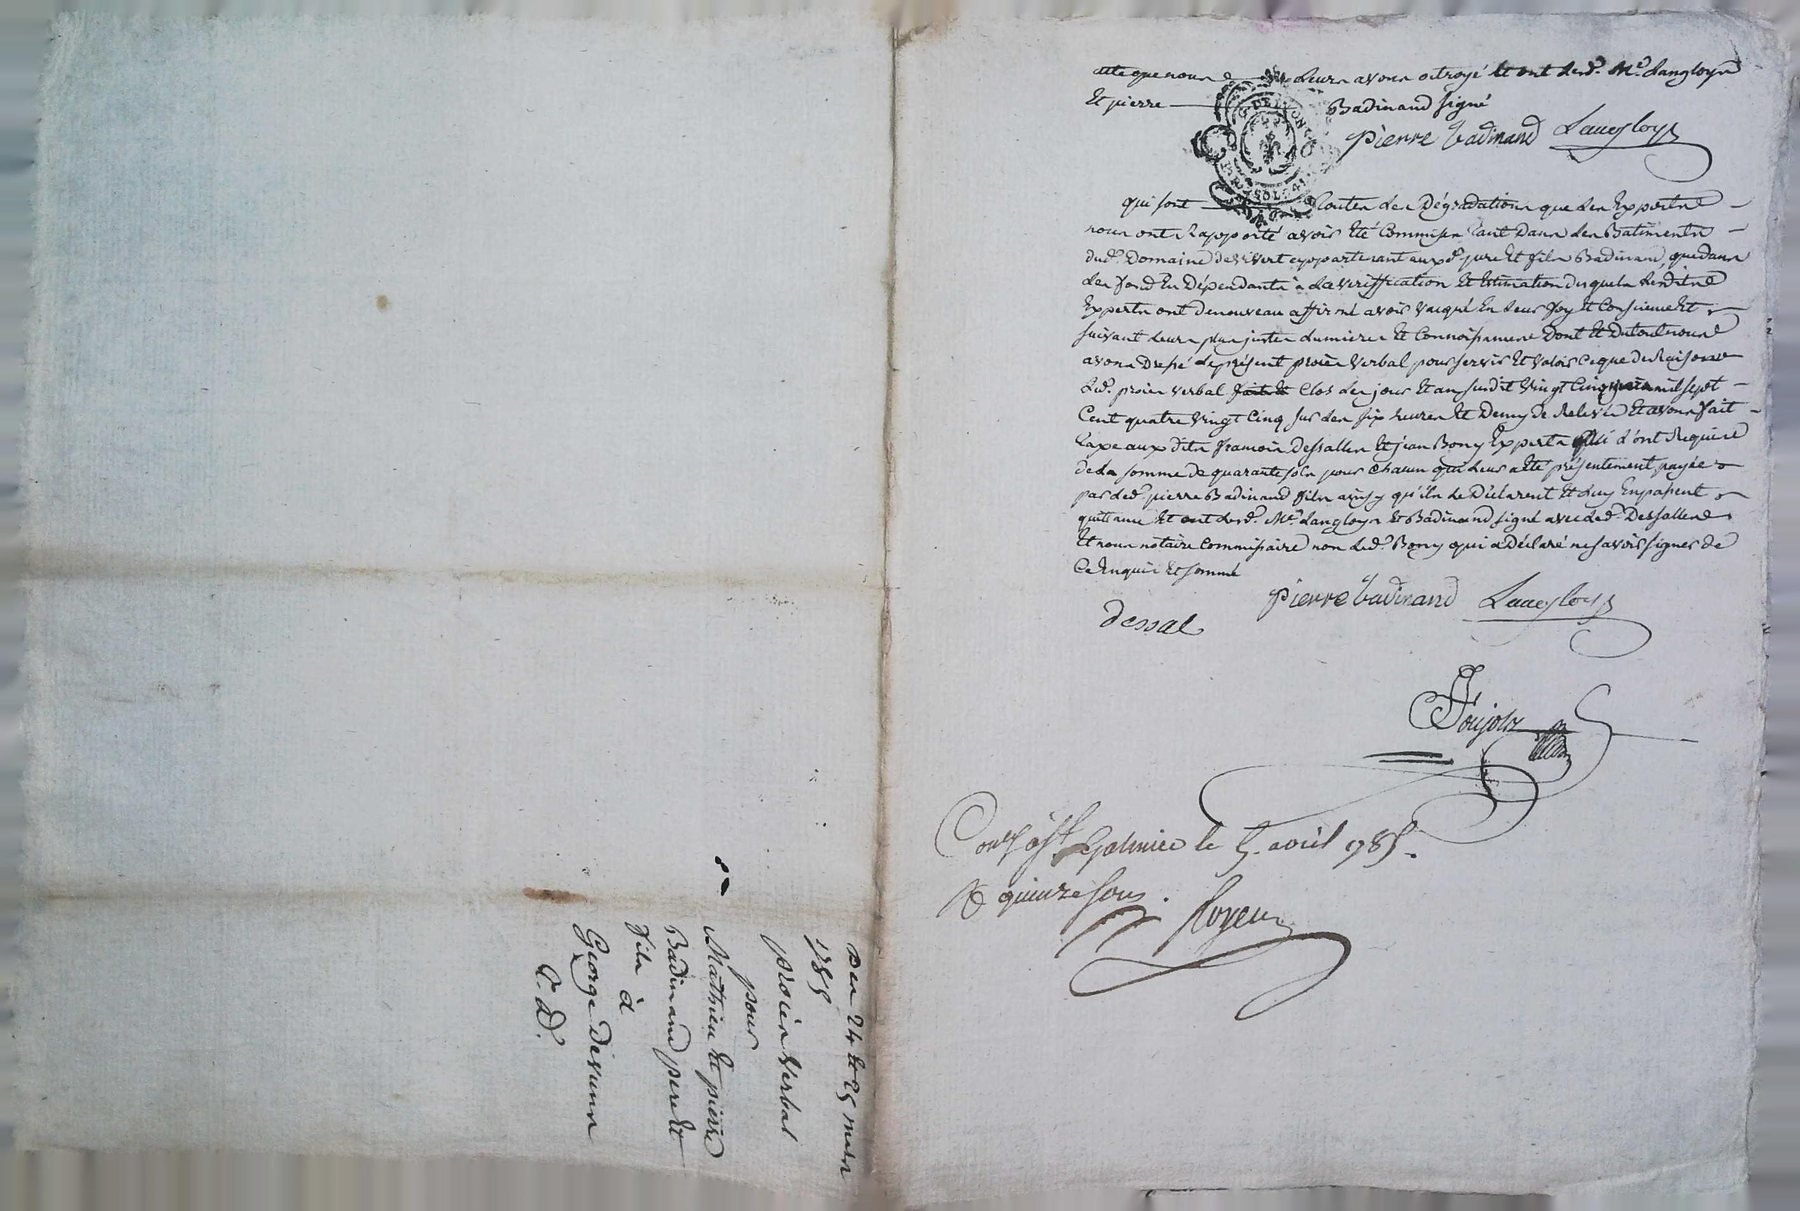 acte que nous leurs avons octroyé et ont lesd. Me. Langloys
Et pierre Badinand signé
pierre badinand Langloys
qui sont Toutes les Dégradations que les Experts
nous ont Rapporté avoir Eté Commises tant Dans les Batiments
dud. Domaine de vivert appartenant auxd. pere Et fils Badinand, que dans
les fonds En Dépendants a la veriffication Et Estimation desquels lesdits
Experts ont denouveau affirmé avoir vaqué En leur foy Et Conscience Et
suivant leurs plus justes lumieres Et Connoissances Dont Et Dutout nous
avons Dressé le présent procès verbal pour servir Et valoir Ceque de Raison
Led. procès verbal Clos les jour Et an susdit vingt Cinq mars mil sept
Cent quatre vingt Cinq sur les six heures Et Demy de Relevée Et avons fait
taxe aux dits francois Dessalles Et jean Bony Experts qui l'ont Requise
de la somme de quarante sols pour chacun qui leur a été présentement payée
par led. pierre Badinand fils ainsy qu'ils le Déclarent Et luy En passent
quittance Et ont lesd. Me. Langloys Et Badinand signé avec led. Dessalles
Et nous notaire Commissaire non led. Bony qui a Déclaré ne savoir signer de
Ce Enquis Et sommé
pierre badinand Langloys
dessal
Conlé à St Galmier le 5. avril 1785.
R quinze sous.
Des 24 Et 25 mars
1785
procès verbal
pour
Mathieu Et pierre
Badinand pere Et
fils à
George Devunn
C. D.